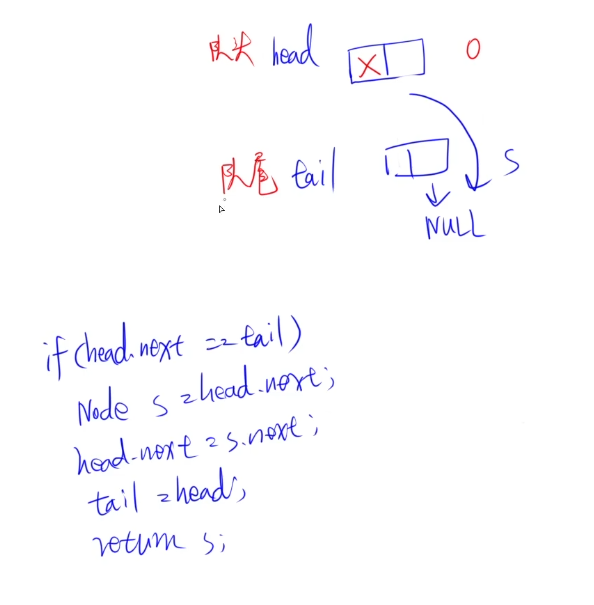 队头 head X 0
队尾 tail S
NULL
if(head.next == tail)
Node s = head.next;
head.next = s.next;
tail = head;
return s;